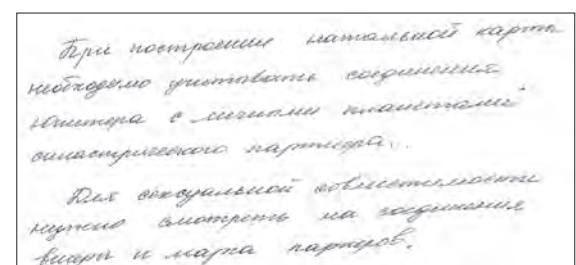 При построении натальной карты
необходимо учитывать соединения
Юпитера с личными планетами
синастрического партнера...
Для сексуальной совместимости
нужно смотреть на соединения
венеры и марса партнеров.